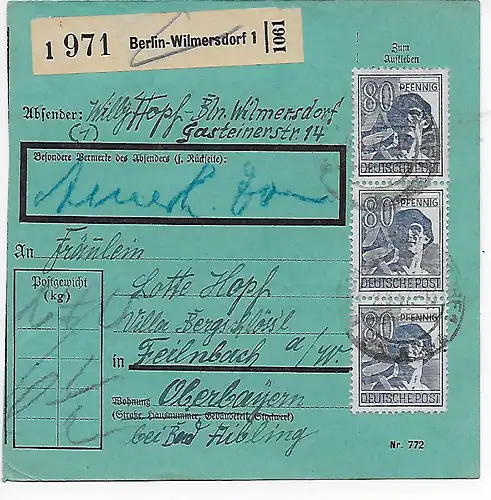 1 971 Berlin-Wilmersdorf 1 1061
Zum
Aufkleben
Absender: Willy Hopf - Bln. Wilmersdorf
(1) Gasteinerstr. 14
Besondere Vermerke des Absenders (s. Rückseite):
80 PFENNIG
DEUTSCHE POST
80 PFENNIG
DEUTSCHE POST
80 PFENNIG
DEUTSCHE POST
An Fräulein
Postgewicht
(kg)
Lotte Hopf
Villa Bergschlössl
in Feilnbach a/W
Wohnung Oberbayern
(Straße, Hausnummer, Gebäudeteil/Stockwerk)
bei Bad Aibling
Nr. 772